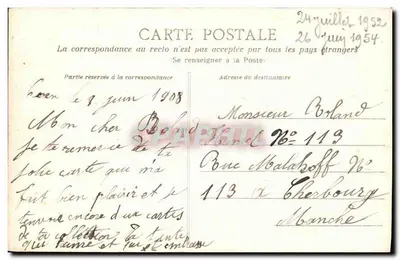 24 juillet 1952
26 juin 1954
CARTE POSTALE
La correspondance au recto n'est pas acceptée par tous les pays étrangers
Se renseigner à la Poste
Partie réservée à la correspondance
Adresse du destinataire
le 3 juin 1908
Mon cher
je te remercie de ta
jolie carte qui ma
fait bien plaisir et je
encore d'un cartes
de ta collection ta tante
qui t'aime et
Monsieur
No 113
Rue Malakoff No
113 a Cherbourg
Manche